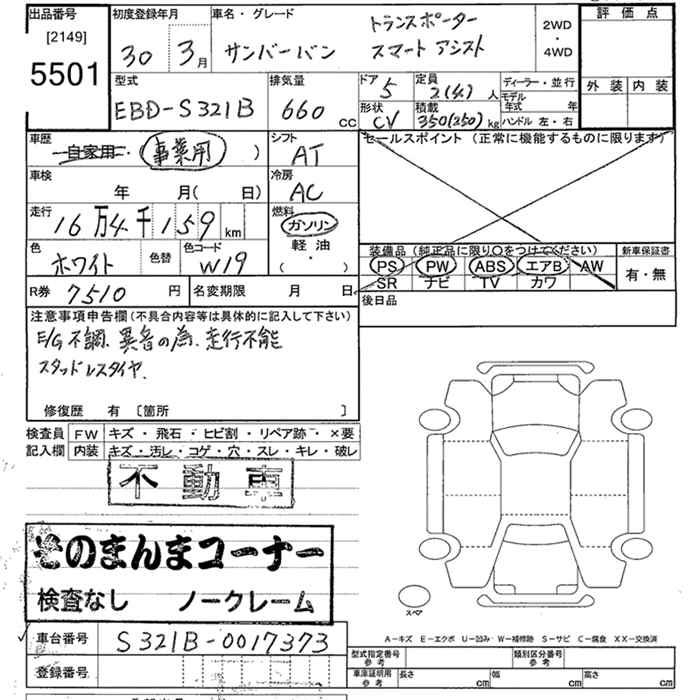 出品番号 [2149] 5501
初度登録年月 30 3月
車名・グレード サンバーバン トランスポーター スマートアシスト
2WD・4WD
評価点
外装 内装
型式 EBD-S321B
排気量 660 cc
ドア 5
定員 2(4)人
形状 CV
積載 350(250)kg
ディーラー・並行
モデル年式 年
ハンドル 左・右
車歴 自家用 事業用 )
シフト AT
車検 年 月( 日)
冷房 AC
走行 16万4千159km
燃料 ガソリン 軽油 ( ・ )
色 ホワイト 色替
色コード W19
R券 7510円
名変期限 月 日
セールスポイント (正常に機能するものに限ります)
装備品 (純正品に限り○をつけてください)
PS PW ABS エアB AW
SR ナビ TV カワ
新車保証書 有・無
後日品
注意事項申告欄(不具合内容等は具体的に記入して下さい)
E/G不調.異音の為.走行不能
スタッドレスタイヤ.
修復歴 有 〔箇所 〕
検査員記入欄
FW キズ・飛石・ヒビ割・リペア跡・×要
内装 キズ・汚レ・コゲ・穴・スレ・キレ・破レ
不動車
そのまんまコーナー
検査なし ノークレーム
スペア
A−キズ E−エクボ U−凹み W−補修跡 S−サビ C−腐食 XX−交換済
車台番号 S321B-0017373
登録番号
型式指定番号 参考
類別区分番号 参考
車庫証明用 参考 長さ cm 幅 cm 高さ cm